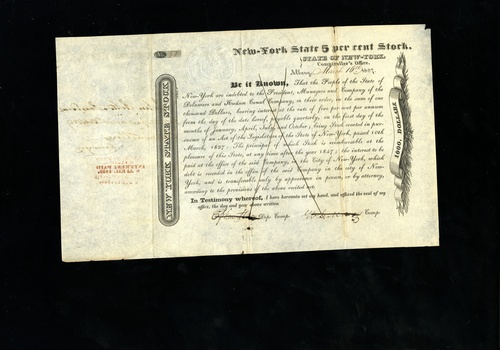 New-York State 5 per cent Stock.
STATE OF NEW-YORK.
Comptroller's Office.
Albany, March
Be it Known, That the People of the State of
New-York are indebted to the President, Managers and Company of the
Delaware and Hudson Canal Company, or their order, in the sum of one
thousand Dollars, bearing interest at the rate of five per cent per annum
from the day of the date hereof, payable quarterly, on the first day of the
months of January, April, July, and October; being Stock created in pursu-
ance of an Act of the Legislature of the State of New-York, passed 10th
March, 1827; The principal of which Stock is reimbursable at the
pleasure of this State, at any time after the year 1847; the interest to be
paid at the office of the said Company, in the City of New-York, which
debt is recorded in the office of the said Company in the city of New-
York, and is transferable only by appearance in person, or by attorney,
according to the provisions of the above recited act.
In Testimony whereof, I have hereunto set my hand, and affixed the seal of my
office, the day and year above written.
Dep. Comp.
Comp.
NEW YORK STATE STOCK
1000 DOLLARS